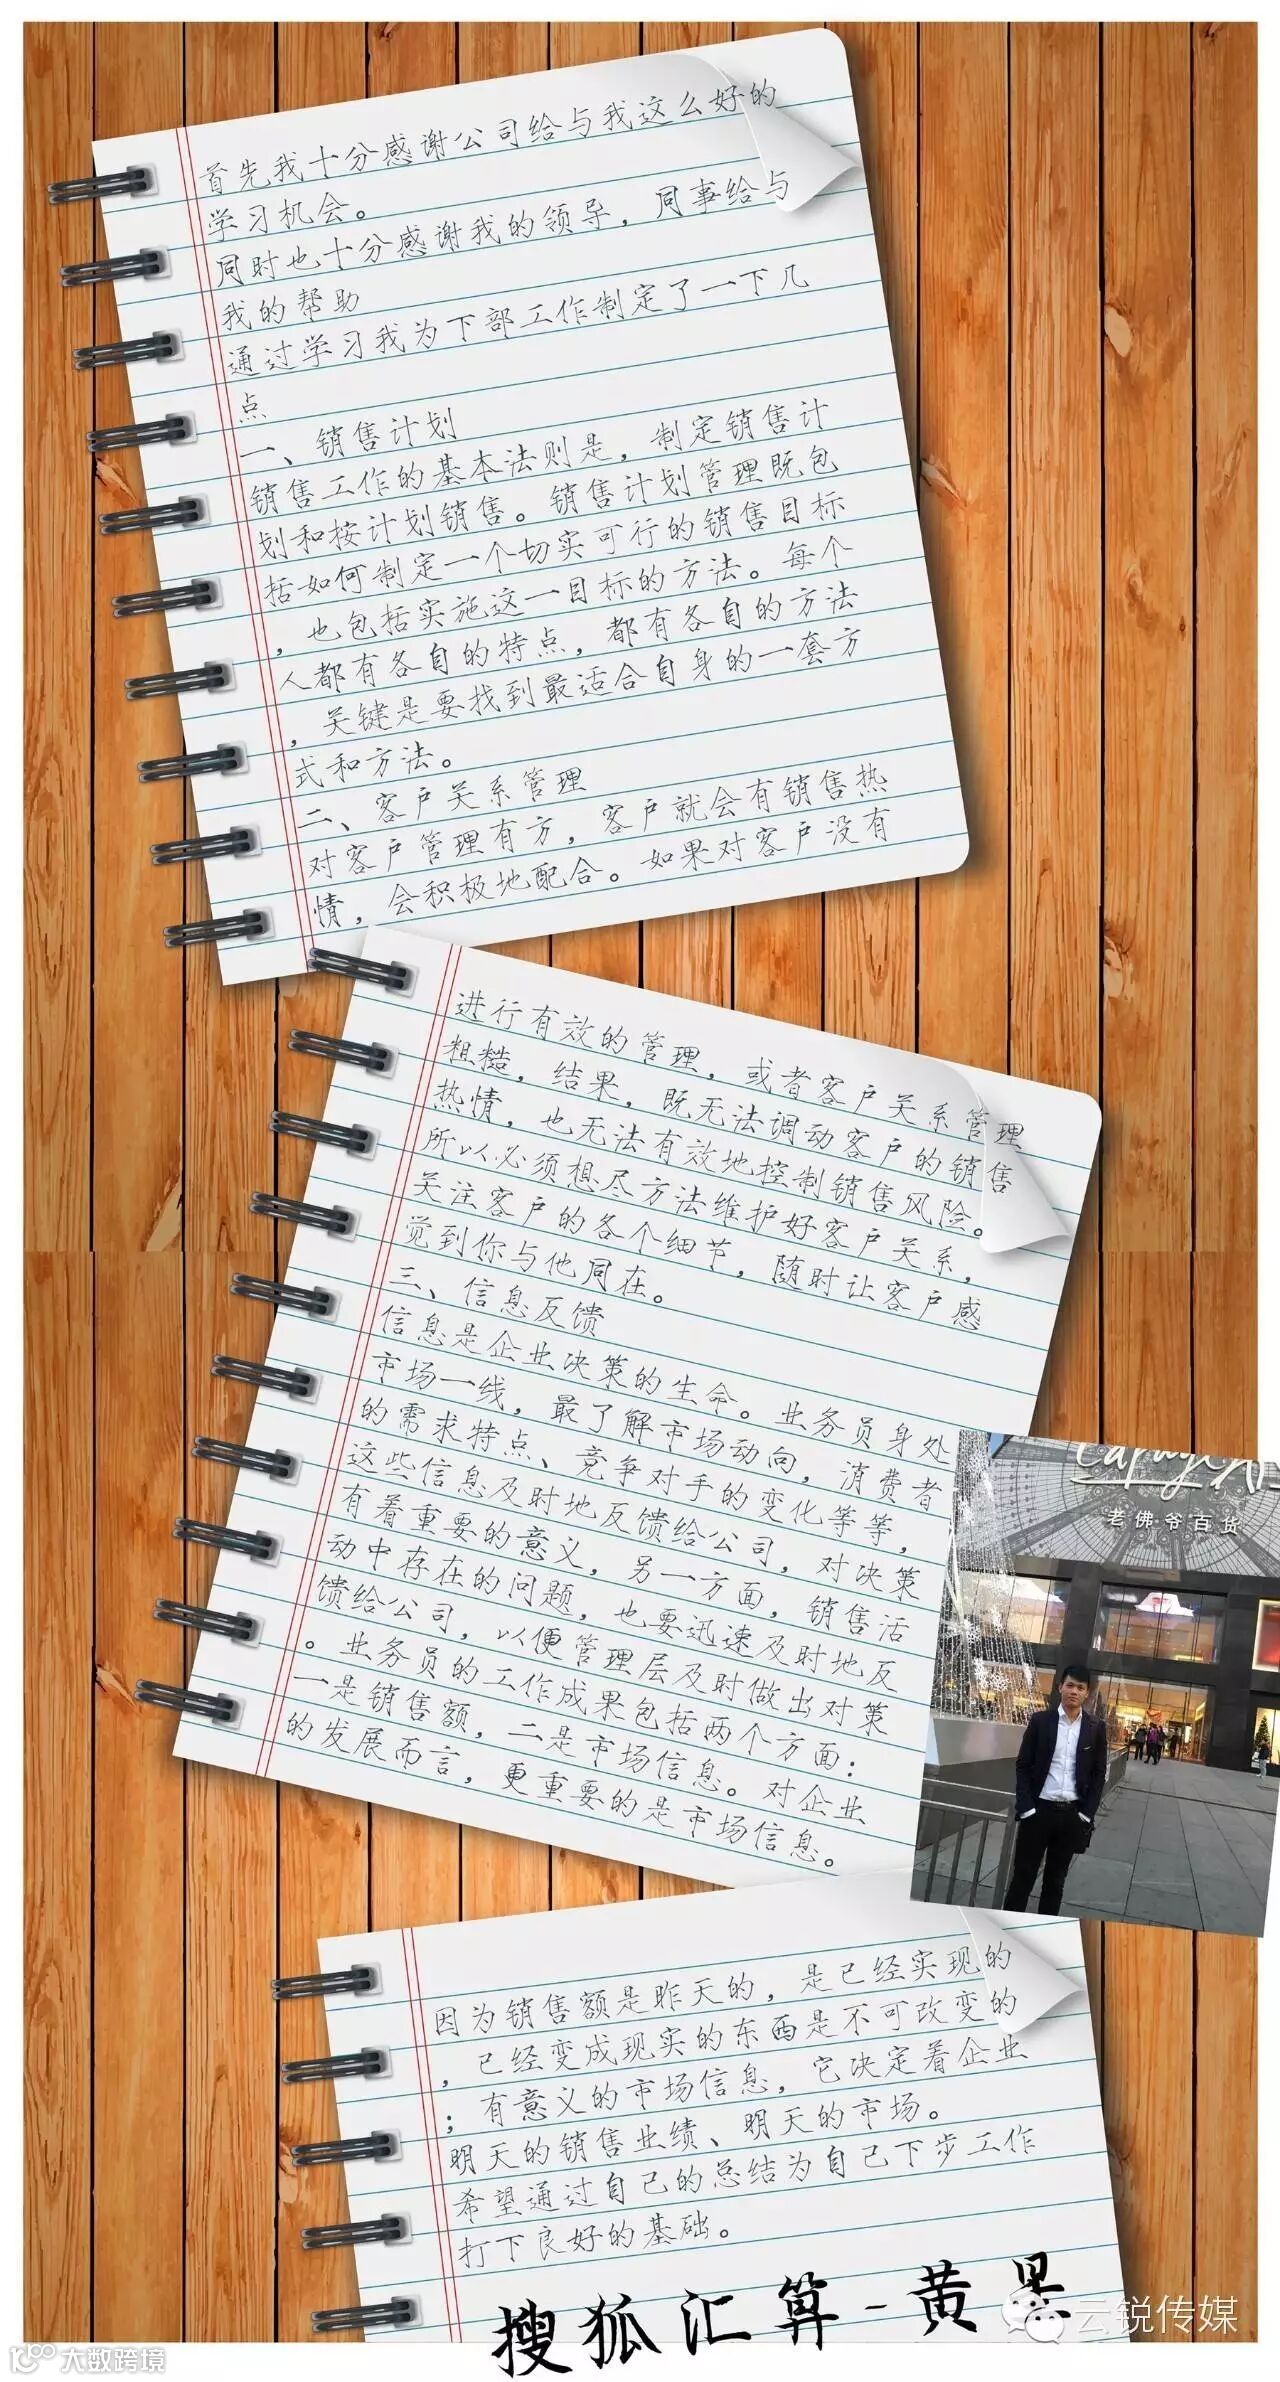 首先我十分感谢公司给与我这么好的
学习机会。
同时也十分感谢我的领导，同事给与
我的帮助
通过学习我为下部工作制定了一下几
点
一、销售计划
销售工作的基本法则是，制定销售计
划和按计划销售。销售计划管理既包
括如何制定一个切实可行的销售目标
，也包括实施这一目标的方法。每个
人都有各自的特点，都有各自的方法
，关键是要找到最适合自身的一套方
式和方法。
二、客户关系管理
对客户管理有方，客户就会有销售热
情，会积极地配合。如果对客户没有
进行有效的管理，或者客户关系管理
粗糙，结果，既无法调动客户的销售
热情，也无法有效地控制销售风险。
所以必须想尽方法维护好客户关系，
关注客户的各个细节，随时让客户感
觉到你与他同在。
三、信息反馈
信息是企业决策的生命。业务员身处
市场一线，最了解市场动向，消费者
的需求特点、竞争对手的变化等等，
这些信息及时地反馈给公司，对决策
有着重要的意义，另一方面，销售活
动中存在的问题，也要迅速及时地反
馈给公司，以便管理层及时做出对策
。业务员的工作成果包括两个方面：
一是销售额，二是市场信息。对企业
的发展而言，更重要的是市场信息。
老佛爷百货
因为销售额是昨天的，是已经实现的
，已经变成现实的东西是不可改变的
；有意义的市场信息，它决定着企业
明天的销售业绩、明天的市场。
希望通过自己的总结为自己下步工作
打下良好的基础。
搜狐汇算-黄
云锐传媒
大数跨境